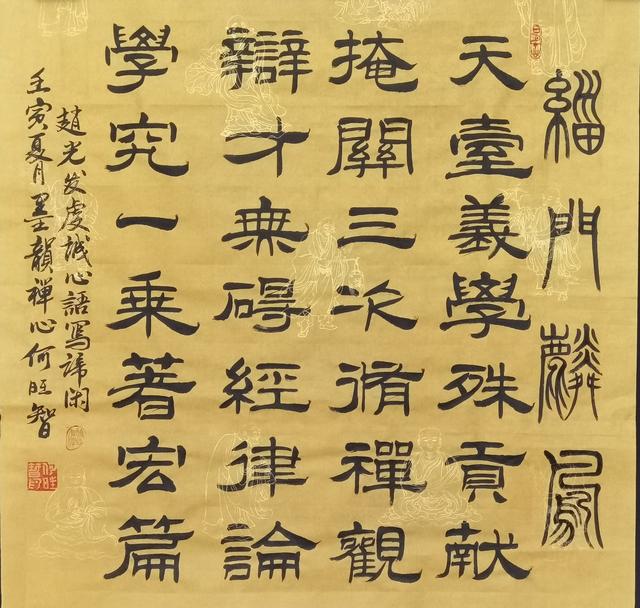 緇門麟鳳
天臺義學殊貢献
掩關三次脩禪觀
辯才無碍經律論
學究一乘著宏篇
趙光發虔誠心語寫諦閑
壬寅夏月墨韻禪心何旺智